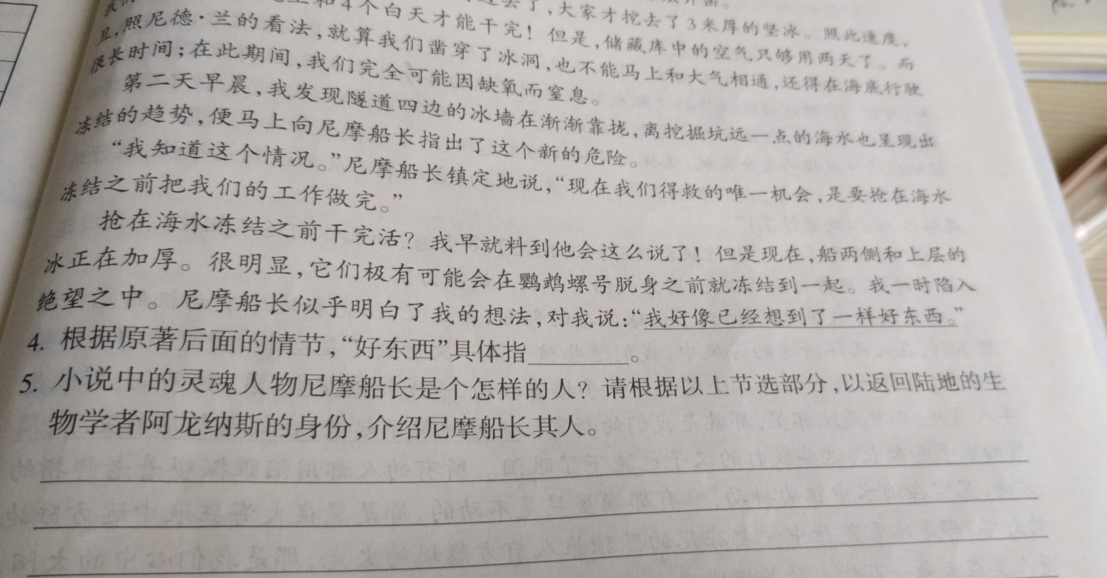 上和4个白天才能干完！但是，储藏库中的空气只够用两天了。而
了，大家才挖去了3米厚的坚冰。照此速度，
且，照尼德·兰的看法，就算我们凿穿了冰洞，也不能马上和大气相通，还得在海底行驶
很长时间；在此期间，我们完全可能因缺氧而窒息。
第二天早晨，我发现隧道四边的冰墙在渐渐靠拢，离挖掘坑远一点的海水也呈现出
冻结的趋势，便马上向尼摩船长指出了这个新的危险。
“我知道这个情况。”尼摩船长镇定地说，“现在我们得救的唯一机会，是要抢在海水
冻结之前把我们的工作做完。”
抢在海水冻结之前干完活？我早就料到他会这么说了！但是现在，船两侧和上层的
冰正在加厚。很明显，它们极有可能会在鹦鹉螺号脱身之前就冻结到一起。我一时陷入
绝望之中。尼摩船长似乎明白了我的想法，对我说：“我好像已经想到了一样好东西。”
4. 根据原著后面的情节，“好东西”具体指________。
5. 小说中的灵魂人物尼摩船长是个怎样的人？请根据以上节选部分，以返回陆地的生
物学者阿龙纳斯的身份，介绍尼摩船长其人。